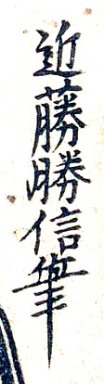 近藤勝信筆